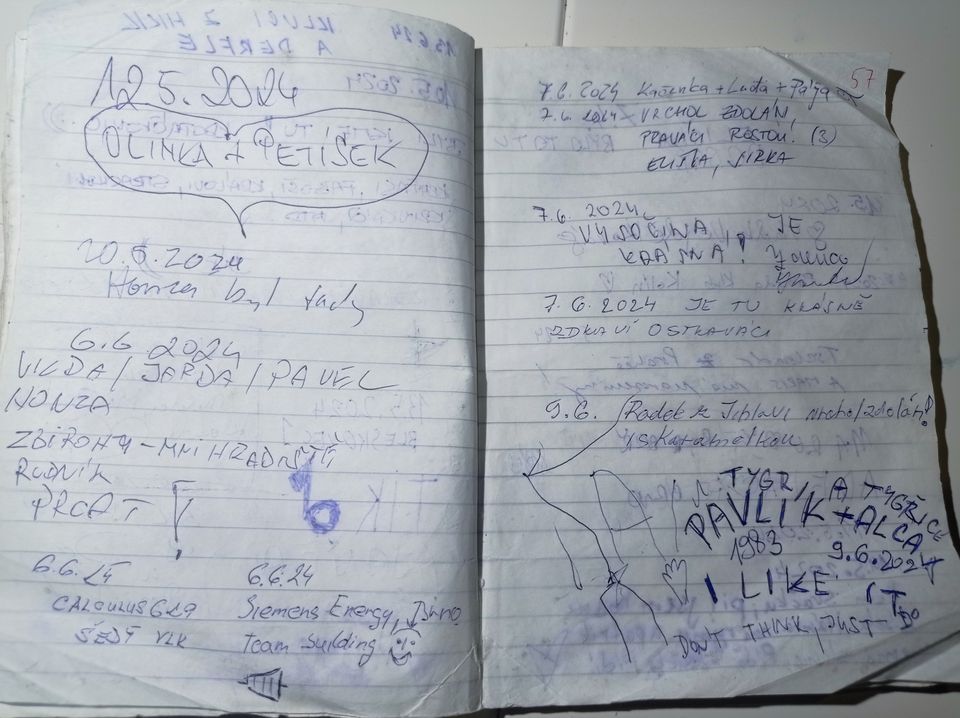 12.5.2024
OLINKA + PETÍŠEK
20.5.2024
Honza byl tady
6.6 2024
VIKDA / JARDA / PAVEL
HONZA
ZBIROHY - MNIHRADIŠTĚ
RUDNÍK
PRCAT
6.6.24
CALCULUS6L9
ŠEDÝ VLK
6.6.24
Siemens Energy, Brno
Team building
57
7.6. 2024 Kačenka + Luďa + Pája
7.6. 2024 VRCHOL ZDOLÁN,
PRAVÁCI ROSTOU. (3)
ELIŠKA, JIRKA
7.6. 2024
VYSOČINA JE
KRÁSNÁ!
7.6.2024 JE TU KRÁSNĚ
ZDRAVÍ OSTRAVÁCI
9.6. Radek z Jihlavi vrchol zdolán!
s Karamelkou
TYGR, A TYGŘICE
PAVLÍK + ALCA
1983 9.6.2024
I LIKE IT
DON'T THINK, JUST DO